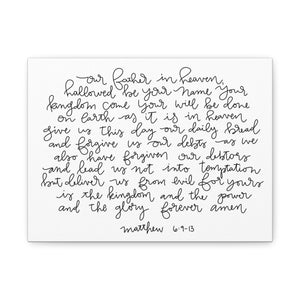 our father in heaven,
hallowed be your name your
kingdom come your will be done
on earth as it is in heaven
give us this day our daily bread
and forgive us our debts as we
also have forgiven our debtors
and lead us not into temptation
but deliver us from evil for yours
is the kingdom and the power
and the glory forever amen
matthew 6:9-13